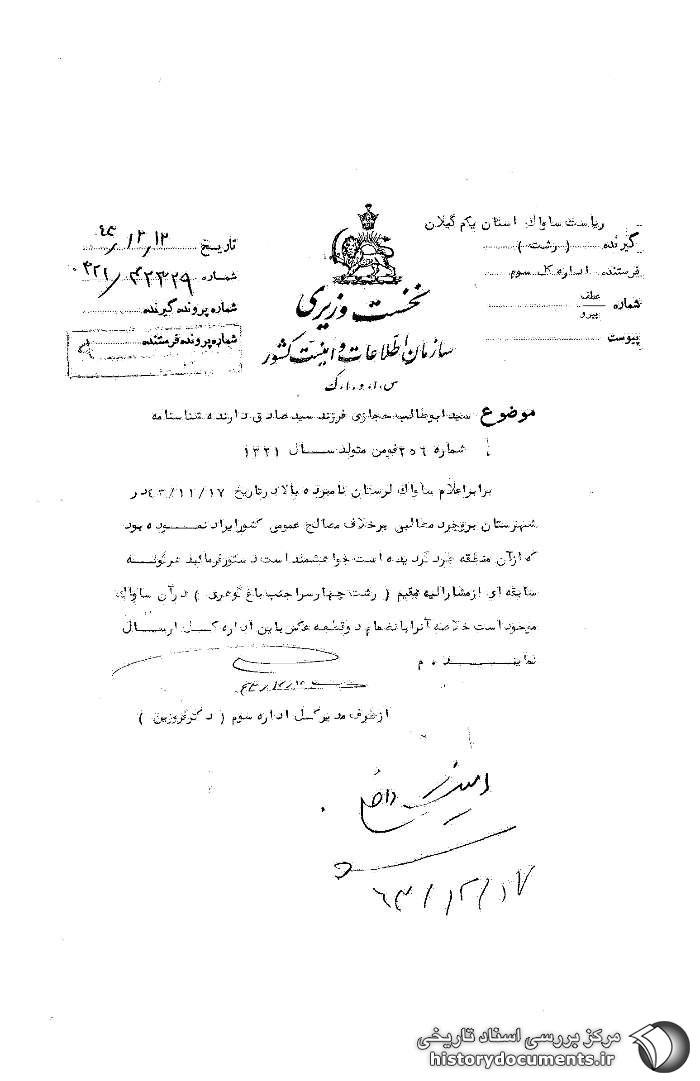 ریاست ساواک استان یکم گیلان
گیرنده (رشت)
فرستنده اداره کل سوم
شماره عطف
پیرو
پیوست
نخست وزیری
سازمان اطلاعات و امنیت کشور
س.ا.و.ا.ک
تاریخ ۴۳/۱۲/۱۲
شماره ۳۲۱/۴۲۳۲۹
شماره پرونده گیرنده
شماره پرونده فرستنده
موضوع سیدابوطالب حجازی فرزند سیدصادق دارنده شناسنامه
شماره ۲۵۶ فومن متولد سال ۱۳۲۱
برابر اعلام ساواک لرستان نامبرده بالا در تاریخ ۴۳/۱۱/۱۷ در
شهرستان بروجرد مطالبی برخلاف مصالح عمومی کشور ایراد نموده بود
که از آن منطقه طرد گردیده است خواهشمند است دستور فرمائید هرگونه
سابقه ای از مشارالیه مقیم (رشت چهارسرا جنب باغ گوهری) در آن ساواک
موجود است خلاصه آنرا بانضمام دو قطعه عکس باین اداره کل ارسال
نمایند. م
از طرف مدیرکل اداره سوم (دکتر فروزین)
داخلی
۴۳/۱۲/۱۷
مرکز بررسی اسناد تاریخی
historydocuments.ir